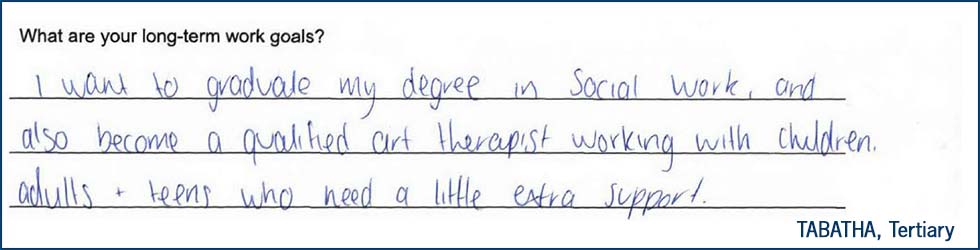 What are your long-term work goals?
I want to graduate my degree in Social Work, and
also become a qualified art therapist working with children.
adults + teens who need a little extra support.
TABATHA, Tertiary